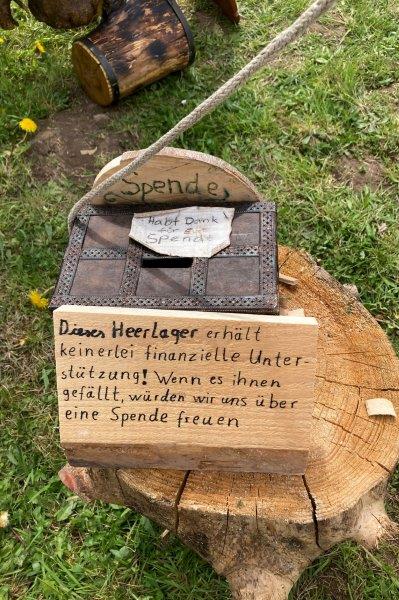 Spende
Habt Dank
für
Spende
Dieses Heerlager erhält
keinerlei finanzielle Unter-
stützung! Wenn es ihnen
gefällt, würden wir uns über
eine Spende freuen